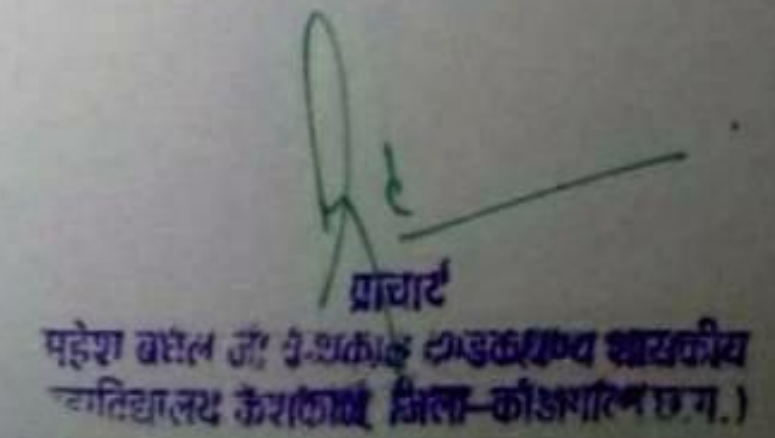 प्राचार्य
महेश बघेल दण्डकारण्य शासकीय
महाविद्यालय केशकाल, जिला-कोंडागांव (छ.ग.)